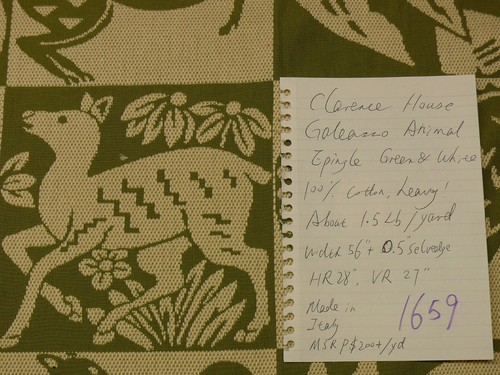 Clarence House
Galeazzo Animal
Epingle Green & White
100% Cotton, heavy!
About 1.5 Lb/yard
width 56" + 0.5" Selvedge
HR 28", VR 27"
Made in
Italy
1659
MSRP $200+/yd